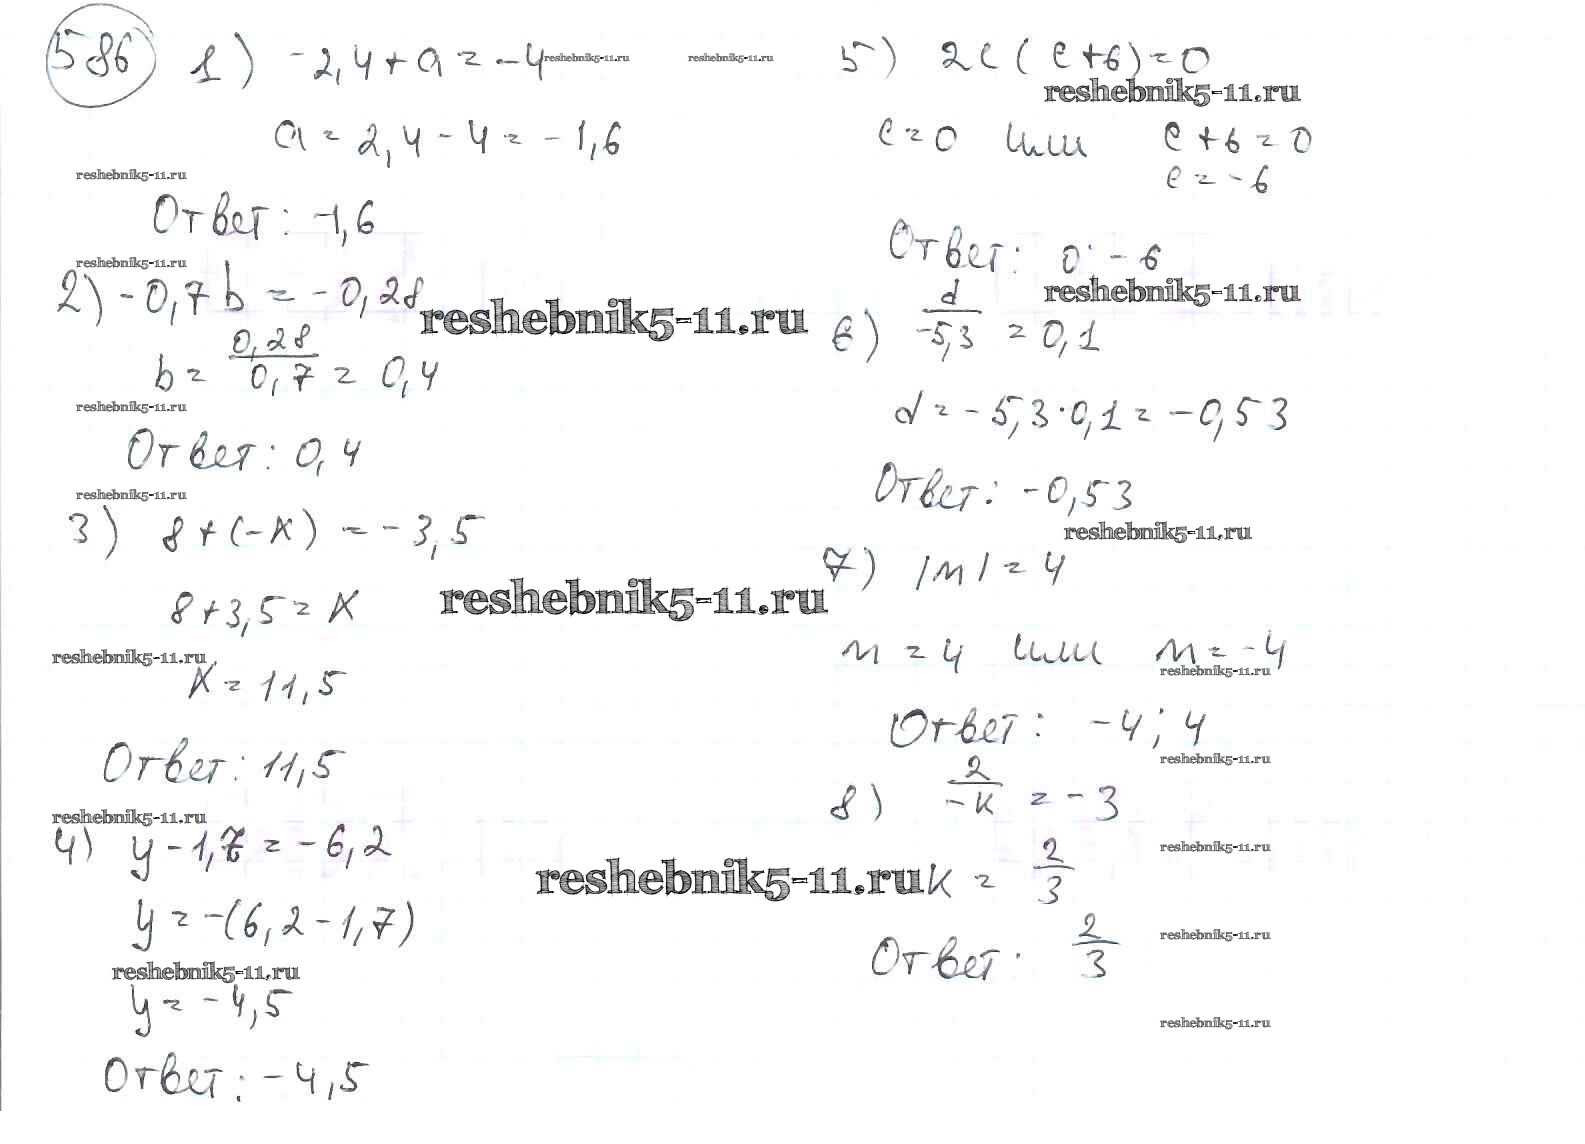 586 1) -2,4 + a = -4 reshebnik5-11.ru reshebnik5-11.ru
a = 2,4 - 4 = -1,6
reshebnik5-11.ru
Ответ: -1,6
reshebnik5-11.ru
2) -0,7b = -0,28
reshebnik5-11.ru
b = 0,28/0,7 = 0,4
reshebnik5-11.ru
Ответ: 0,4
reshebnik5-11.ru
3) 8 + (-x) = -3,5
reshebnik5-11.ru
8 + 3,5 = x
reshebnik5-11.ru
x = 11,5
Ответ: 11,5
reshebnik5-11.ru
4) y - 1,7 = -6,2
reshebnik5-11.ru
y = -(6,2 - 1,7)
reshebnik5-11.ru
y = -4,5
Ответ: -4,5
5) 2c(c+6) = 0
reshebnik5-11.ru
c = 0 или c + 6 = 0
c = -6
Ответ: 0; -6
reshebnik5-11.ru
6) d/-5,3 = 0,1
d = -5,3 · 0,1 = -0,53
Ответ: -0,53
reshebnik5-11.ru
7) |m| = 4
m = 4 или m = -4
reshebnik5-11.ru
Ответ: -4; 4
reshebnik5-11.ru
8) 2/-k = -3
reshebnik5-11.ru
k = 2/3
reshebnik5-11.ru
Ответ: 2/3
reshebnik5-11.ru